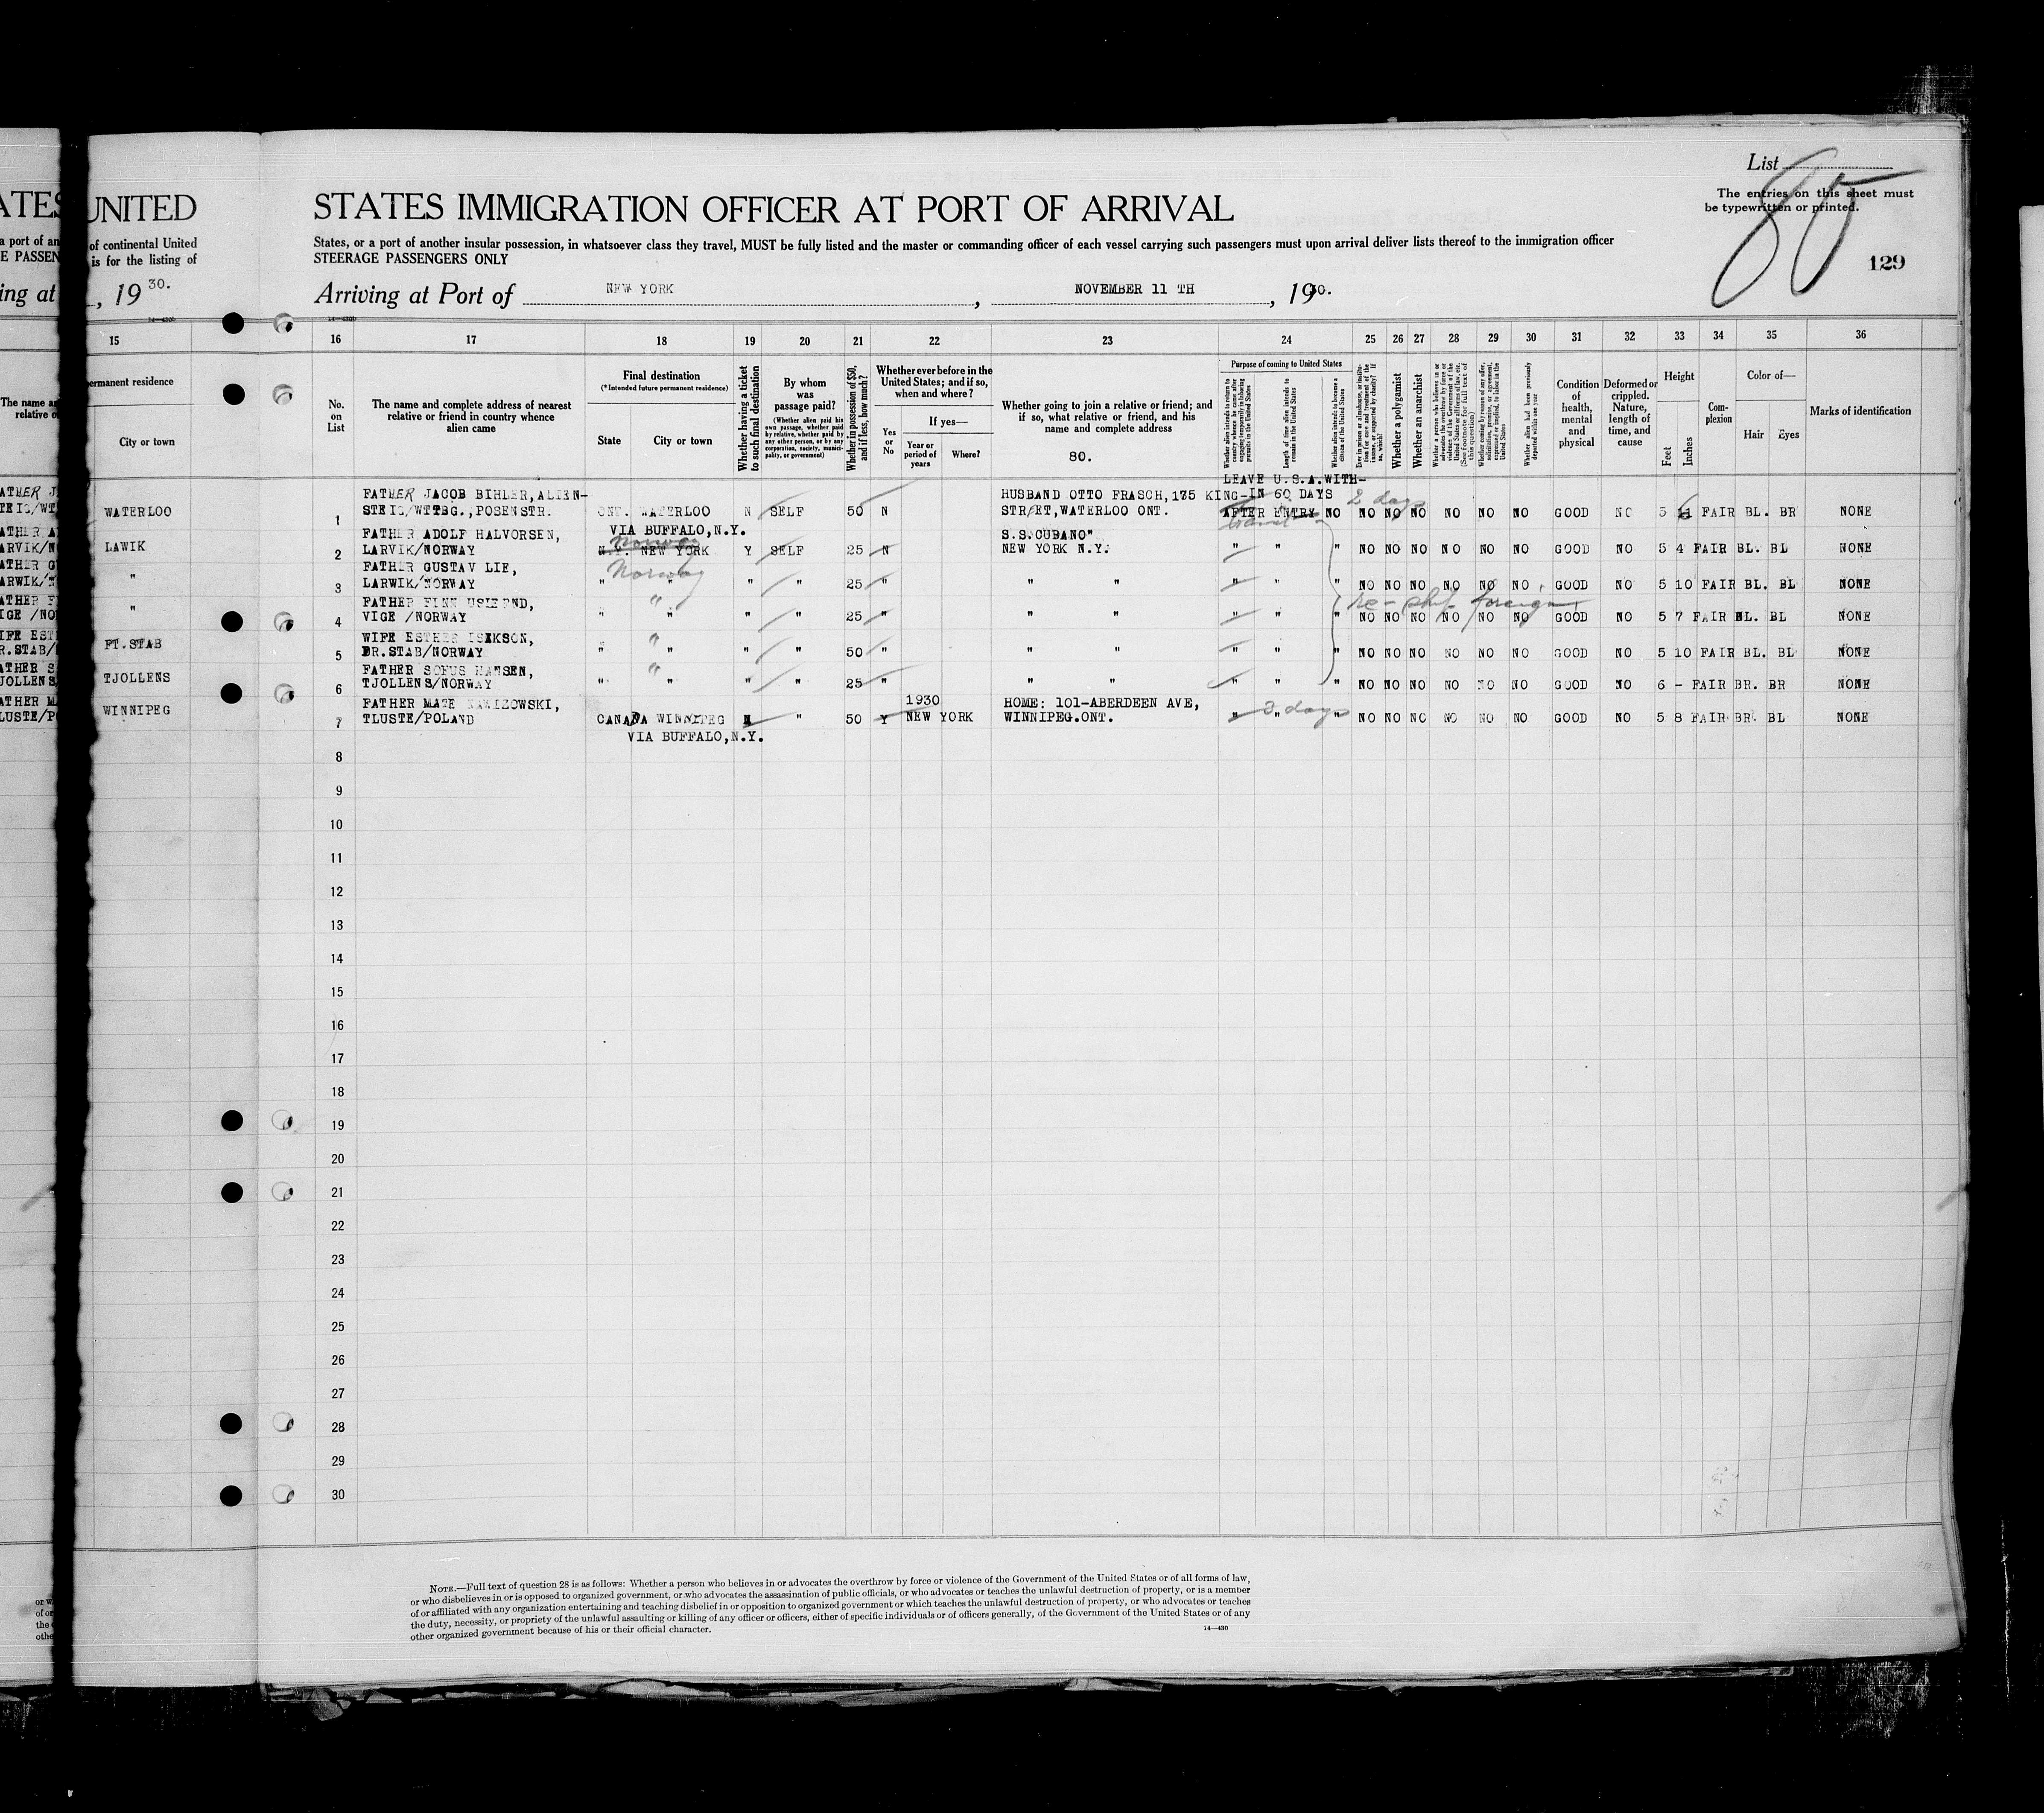 List
80
The entries on this sheet must
be typewritten or printed.
129
ATES
UNITED
STATES IMMIGRATION OFFICER AT PORT OF ARRIVAL
a port of an
E PASSEN
of continental United
is for the listing of
States, or a port of another insular possession, in whatsoever class they travel, MUST be fully listed and the master or commanding officer of each vessel carrying such passengers must upon arrival deliver lists thereof to the immigration officer
STEERAGE PASSENGERS ONLY
ing at
, 19 30.
Arriving at Port of NEW YORK , NOVEMBER 11 TH , 19 30.
15 16 17 18 19 20 21 22 23 24 25 26 27 28 29 30 31 32 33 34 35 36
ermanent residence
City or town
The name a
relative o
No.
on
List
The name and complete address of nearest
relative or friend in country whence
alien came
Final destination
(*Intended future permanent residence)
State City or town
Whether having a ticket
to such final destination
By whom
was
passage paid?
(Whether alien paid his
own passage, whether paid
by relative, whether paid by
any other person, or by any
corporation, society, munici-
pality, or government)
Whether in possession of $50,
and if less, how much?
Whether ever before in the
United States; and if so,
when and where?
If yes—
Yes
or
No
Year or
period of
years
Where?
Whether going to join a relative or friend; and
if so, what relative or friend, and his
name and complete address
80.
Purpose of coming to United States
Whether alien intends to return to
country whence he came after
engaging temporarily in laboring
pursuits in the United States
Length of time alien intends to
remain in the United States
Whether alien intends to become a
citizen of the United States
Whether a polygamist
Whether an anarchist
Whether a person who believes in or
advocates the overthrow by force or
violence of the Government of the
United States or all forms of law, etc.
(See footnote for full text of
this question)
Whether coming by reason of any offer,
solicitation, promise, or agreement,
expressed or implied, to labor in the
United States
Whether alien had been previously
deported within one year
Condition
of
health,
mental
and
physical
Deformed or
crippled.
Nature,
length of
time, and
cause
Height
Feet
Inches
Com-
plexion
Color of—
Hair Eyes
Marks of identification
LEAVE U.S.A.WITH-
FATHER JACOB BIHLER, ALLEN- HUSBAND OTTO FRASCH,175 KING-IN 60 DAYS 2 days
WATERLOO 1 STEIG/WTTBG.,POSENSTR. ONT. WATERLOO N SELF 50 N STREET,WATERLOO ONT. AFTER ENTRY NO NO NO NO NO NO NO GOOD NO 5 FAIR BL. BR NONE
VIA BUFFALO,N.Y.
FATHER ADOLF HALVORSEN, Norway S.S."CUBANO"
LAWIK 2 LARVIK/NORWAY N.Y. NEW YORK Y SELF 25 N NEW YORK N.Y. " " " NO NO NO NO NO NO GOOD NO 5 4 FAIR BL. BL NONE
FATHER GUSTAV LIE, Norway
" 3 LARWIK/NORWAY " " " " 25 " " " " " " NO NO NO NO NO NO GOOD NO 5 10 FAIR BL. BL NONE
FATHER FINN " re-ship foreign
" 4 VIGE /NORWAY " " " " 25 " " " " " " NO NO NO NO NO NO GOOD NO 5 7 FAIR BL. BL NONE
WIFE ESTHER ISEKSON, "
FT.STAB 5 FR.STAB/NORWAY " " " " 50 " " " " " " NO NO NO NO NO NO GOOD NO 5 10 FAIR BL. BL NONE
FATHER SOFUS HANSEN, "
TJOLLENS 6 TJOLLENS/NORWAY " " " " 25 " " " " " " NO NO NO NO NO NO GOOD NO 6 - FAIR BR. BR NONE
FATHER MATE 1930 HOME: 101-ABERDEEN AVE,
WINNIPEG 7 TLUSTE/POLAND CANADA WINNIPEG N " 50 Y NEW YORK WINNIPEG.ONT. " " 3 days " NO NO NO NO NO NO GOOD NO 5 8 FAIR BR. BL NONE
VIA BUFFALO,N.Y.
8
9
10
11
12
13
14
15
16
17
18
19
20
21
22
23
24
25
26
27
28
29
30
NOTE.—Full text of question 28 is as follows: Whether a person who believes in or advocates the overthrow by force or violence of the Government of the United States or of all forms of law,
or who disbelieves in or is opposed to organized government, or who advocates the assassination of public officials, or who advocates or teaches the unlawful destruction of property, or is a member
of or affiliated with any organization entertaining and teaching disbelief in or opposition to organized government or which teaches the unlawful destruction of property, or who advocates or teaches
the duty, necessity, or propriety of the unlawful assaulting or killing of any officer or officers, either of specific individuals or of officers generally, of the Government of the United States or of any
other organized government because of his or their official character.
14—430